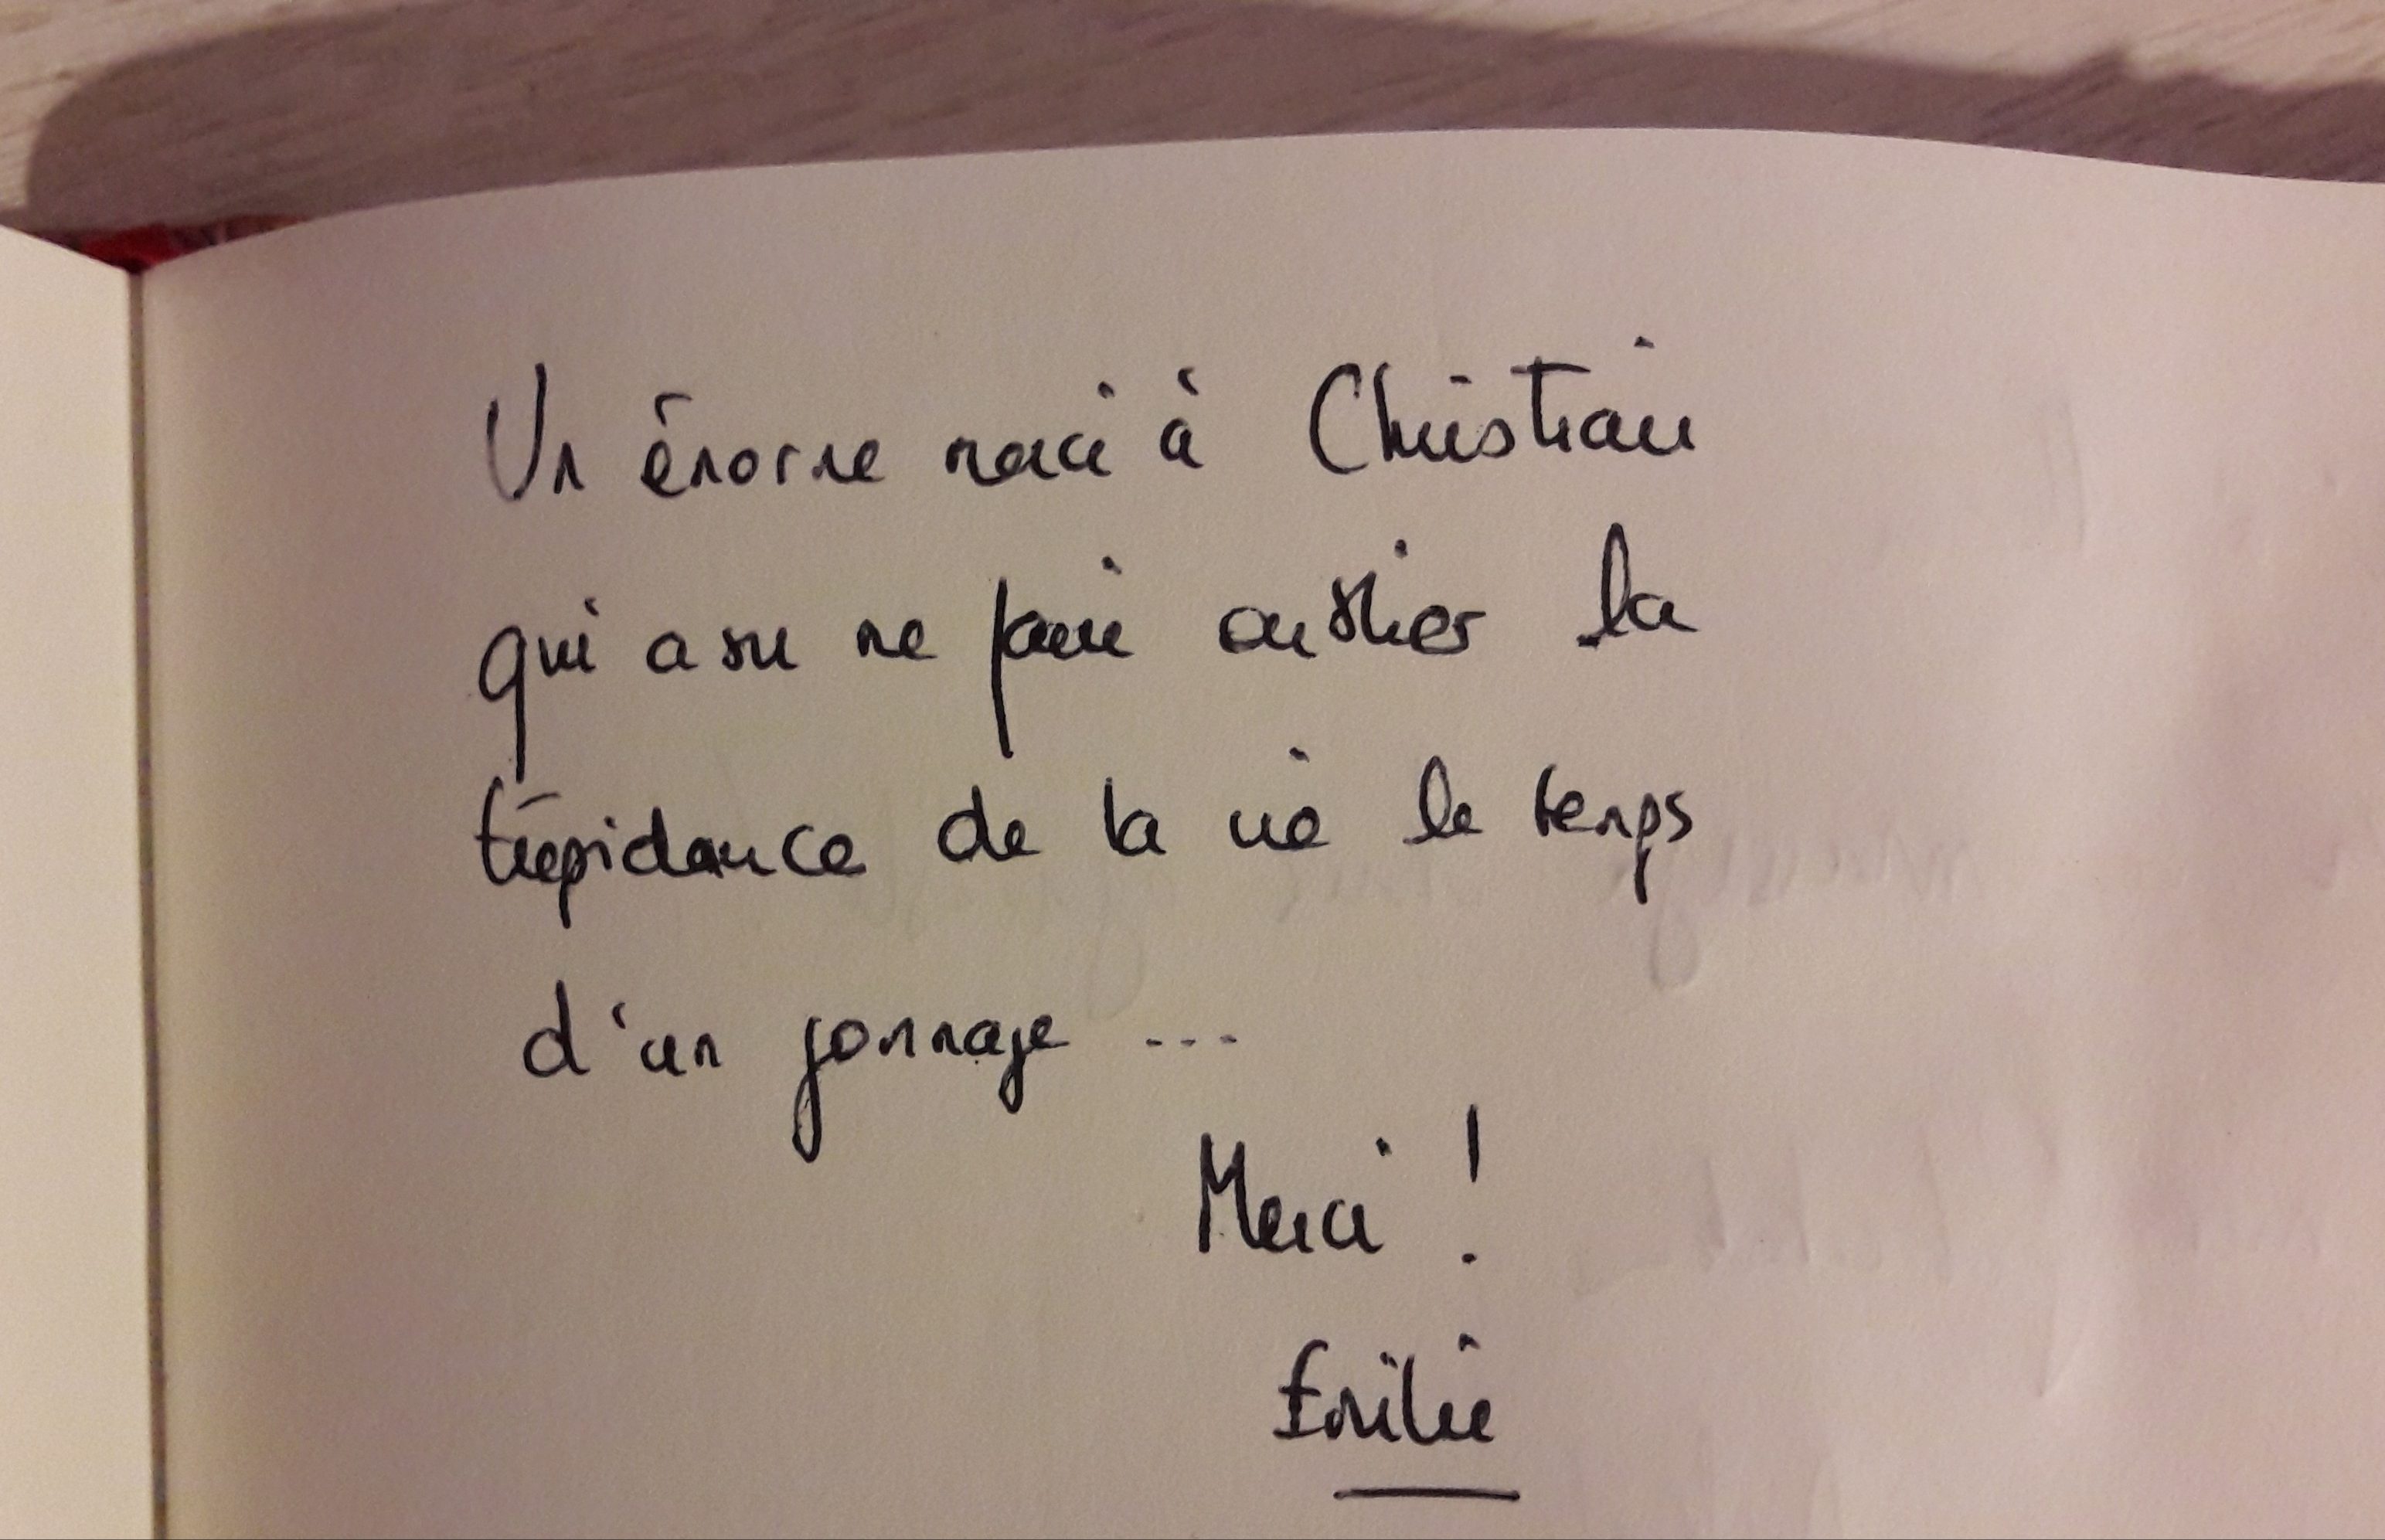 Un énorme merci à Christian
qui a su me faire oublier la
trépidance de la vie le temps
d'un gommage ...
Merci !
Emilie